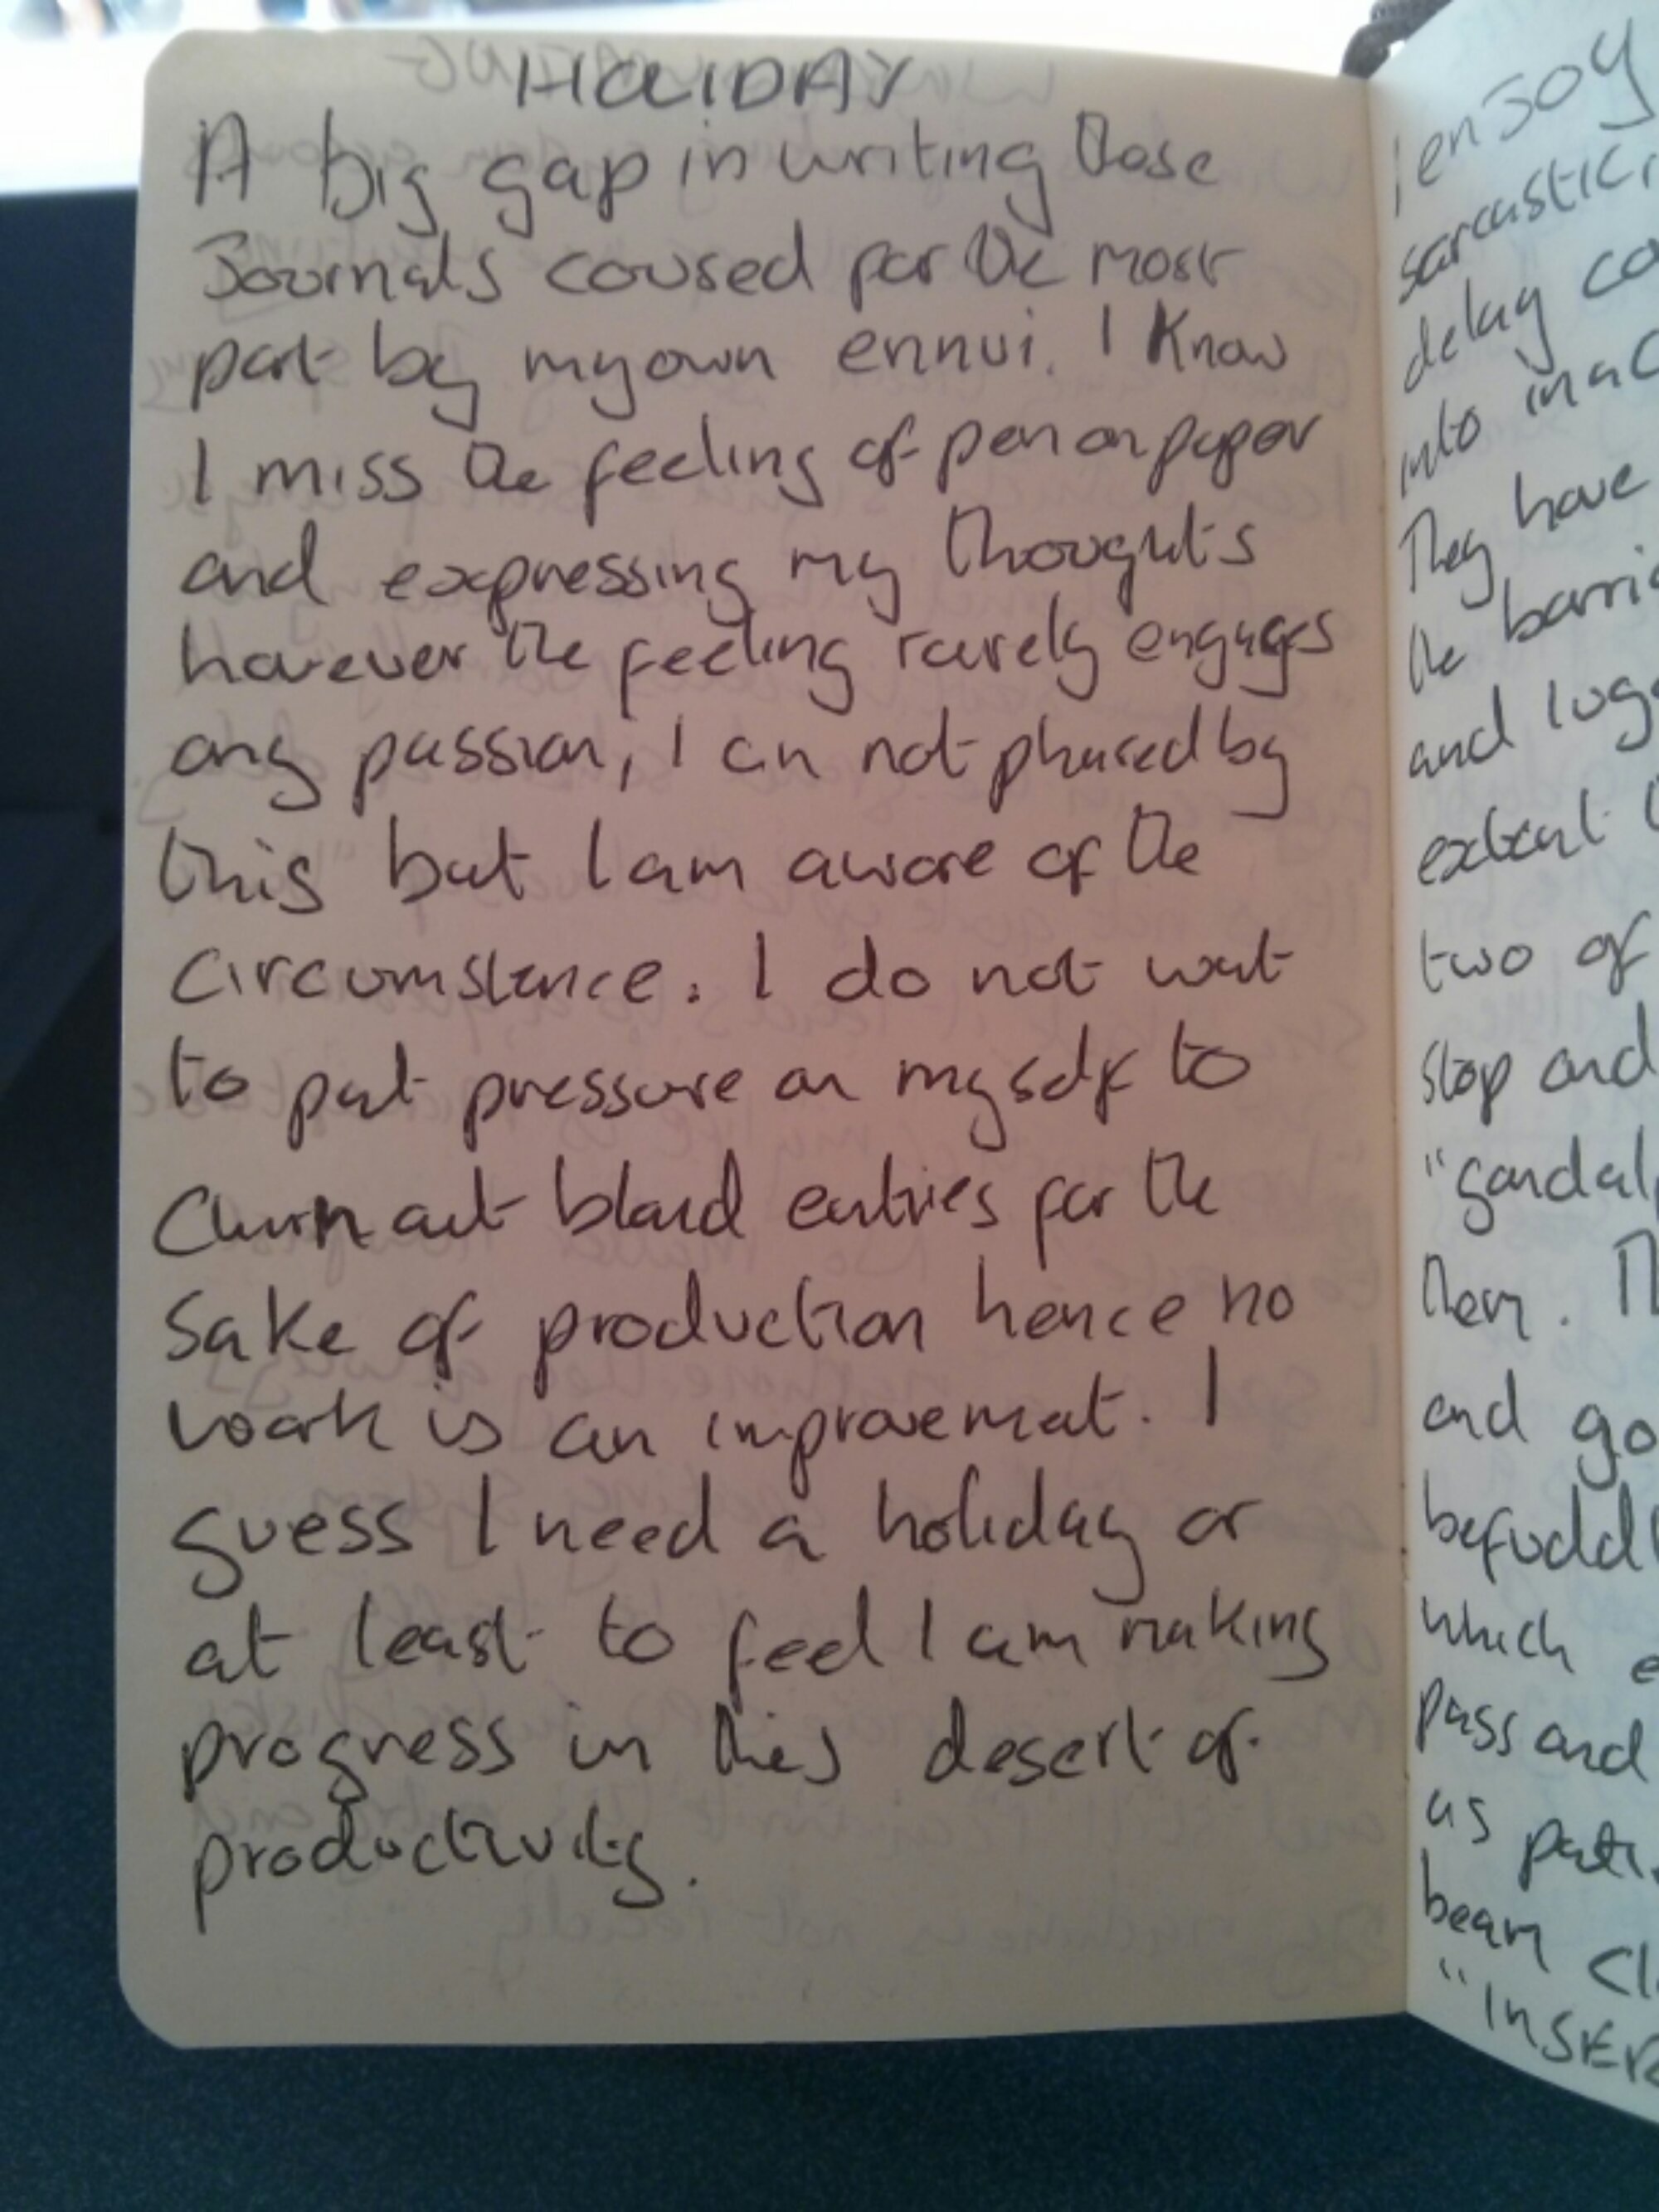 HOLIDAY
A big gap in writing these
Journals caused for the most
part by my own ennui. I Know
I miss the feeling of pen on paper
and expressing my thoughts
however the feeling rarely engages
any passion, I am not phased by
this but I am aware of the
Circumstance. I do not want
to put pressure on myself to
Churn out bland entries for the
Sake of production hence no
work is an improvement. I
guess I need a holiday or
at least to feel I am making
progress in this desert of
productivity.
I enJoy
sarcastic
delay
into
They have
the
and
extent
two of
Stop and
them.
and go
which
pass and
as
beam